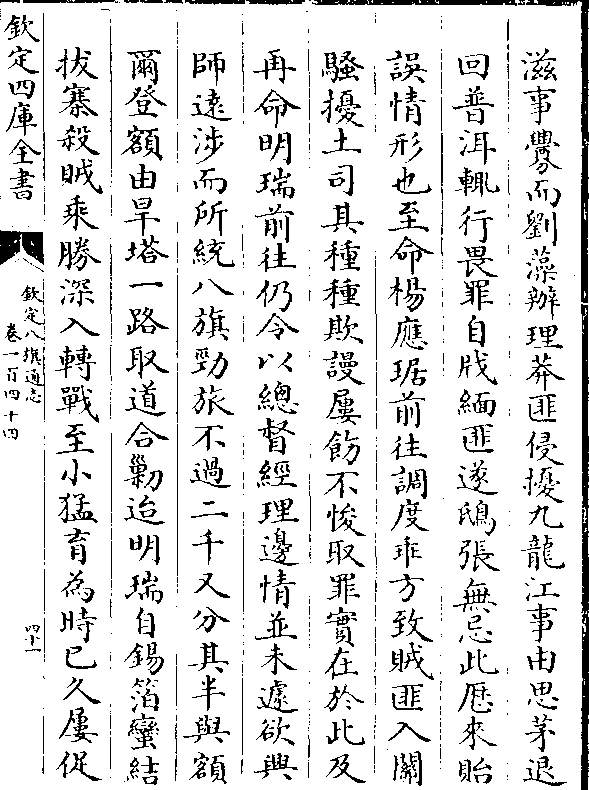 滋事釁而劉藻辦理莽匪侵擾九龍江事由思茅退
回普洱輒行畏罪自戕緬匪遂鴟張無忌此歴來貽
誤情形也至命楊應琚前往調度乖方致賊匪入關
騷擾土司其種種欺謾屢飭不悛取罪實在於此及
再命明瑞前往仍令以總督經理邊情並未遽欲興
師逺涉而所統八旗勁旅不過二千又分其半與額
爾登額由旱塔一路取道合勦迨明瑞自錫箔蠻結
拔寨殺賊乘勝深入轉戰至小猛育為時已久屢促
欽定四庫全書
欽定八旗通志
卷一百四十四
四十一